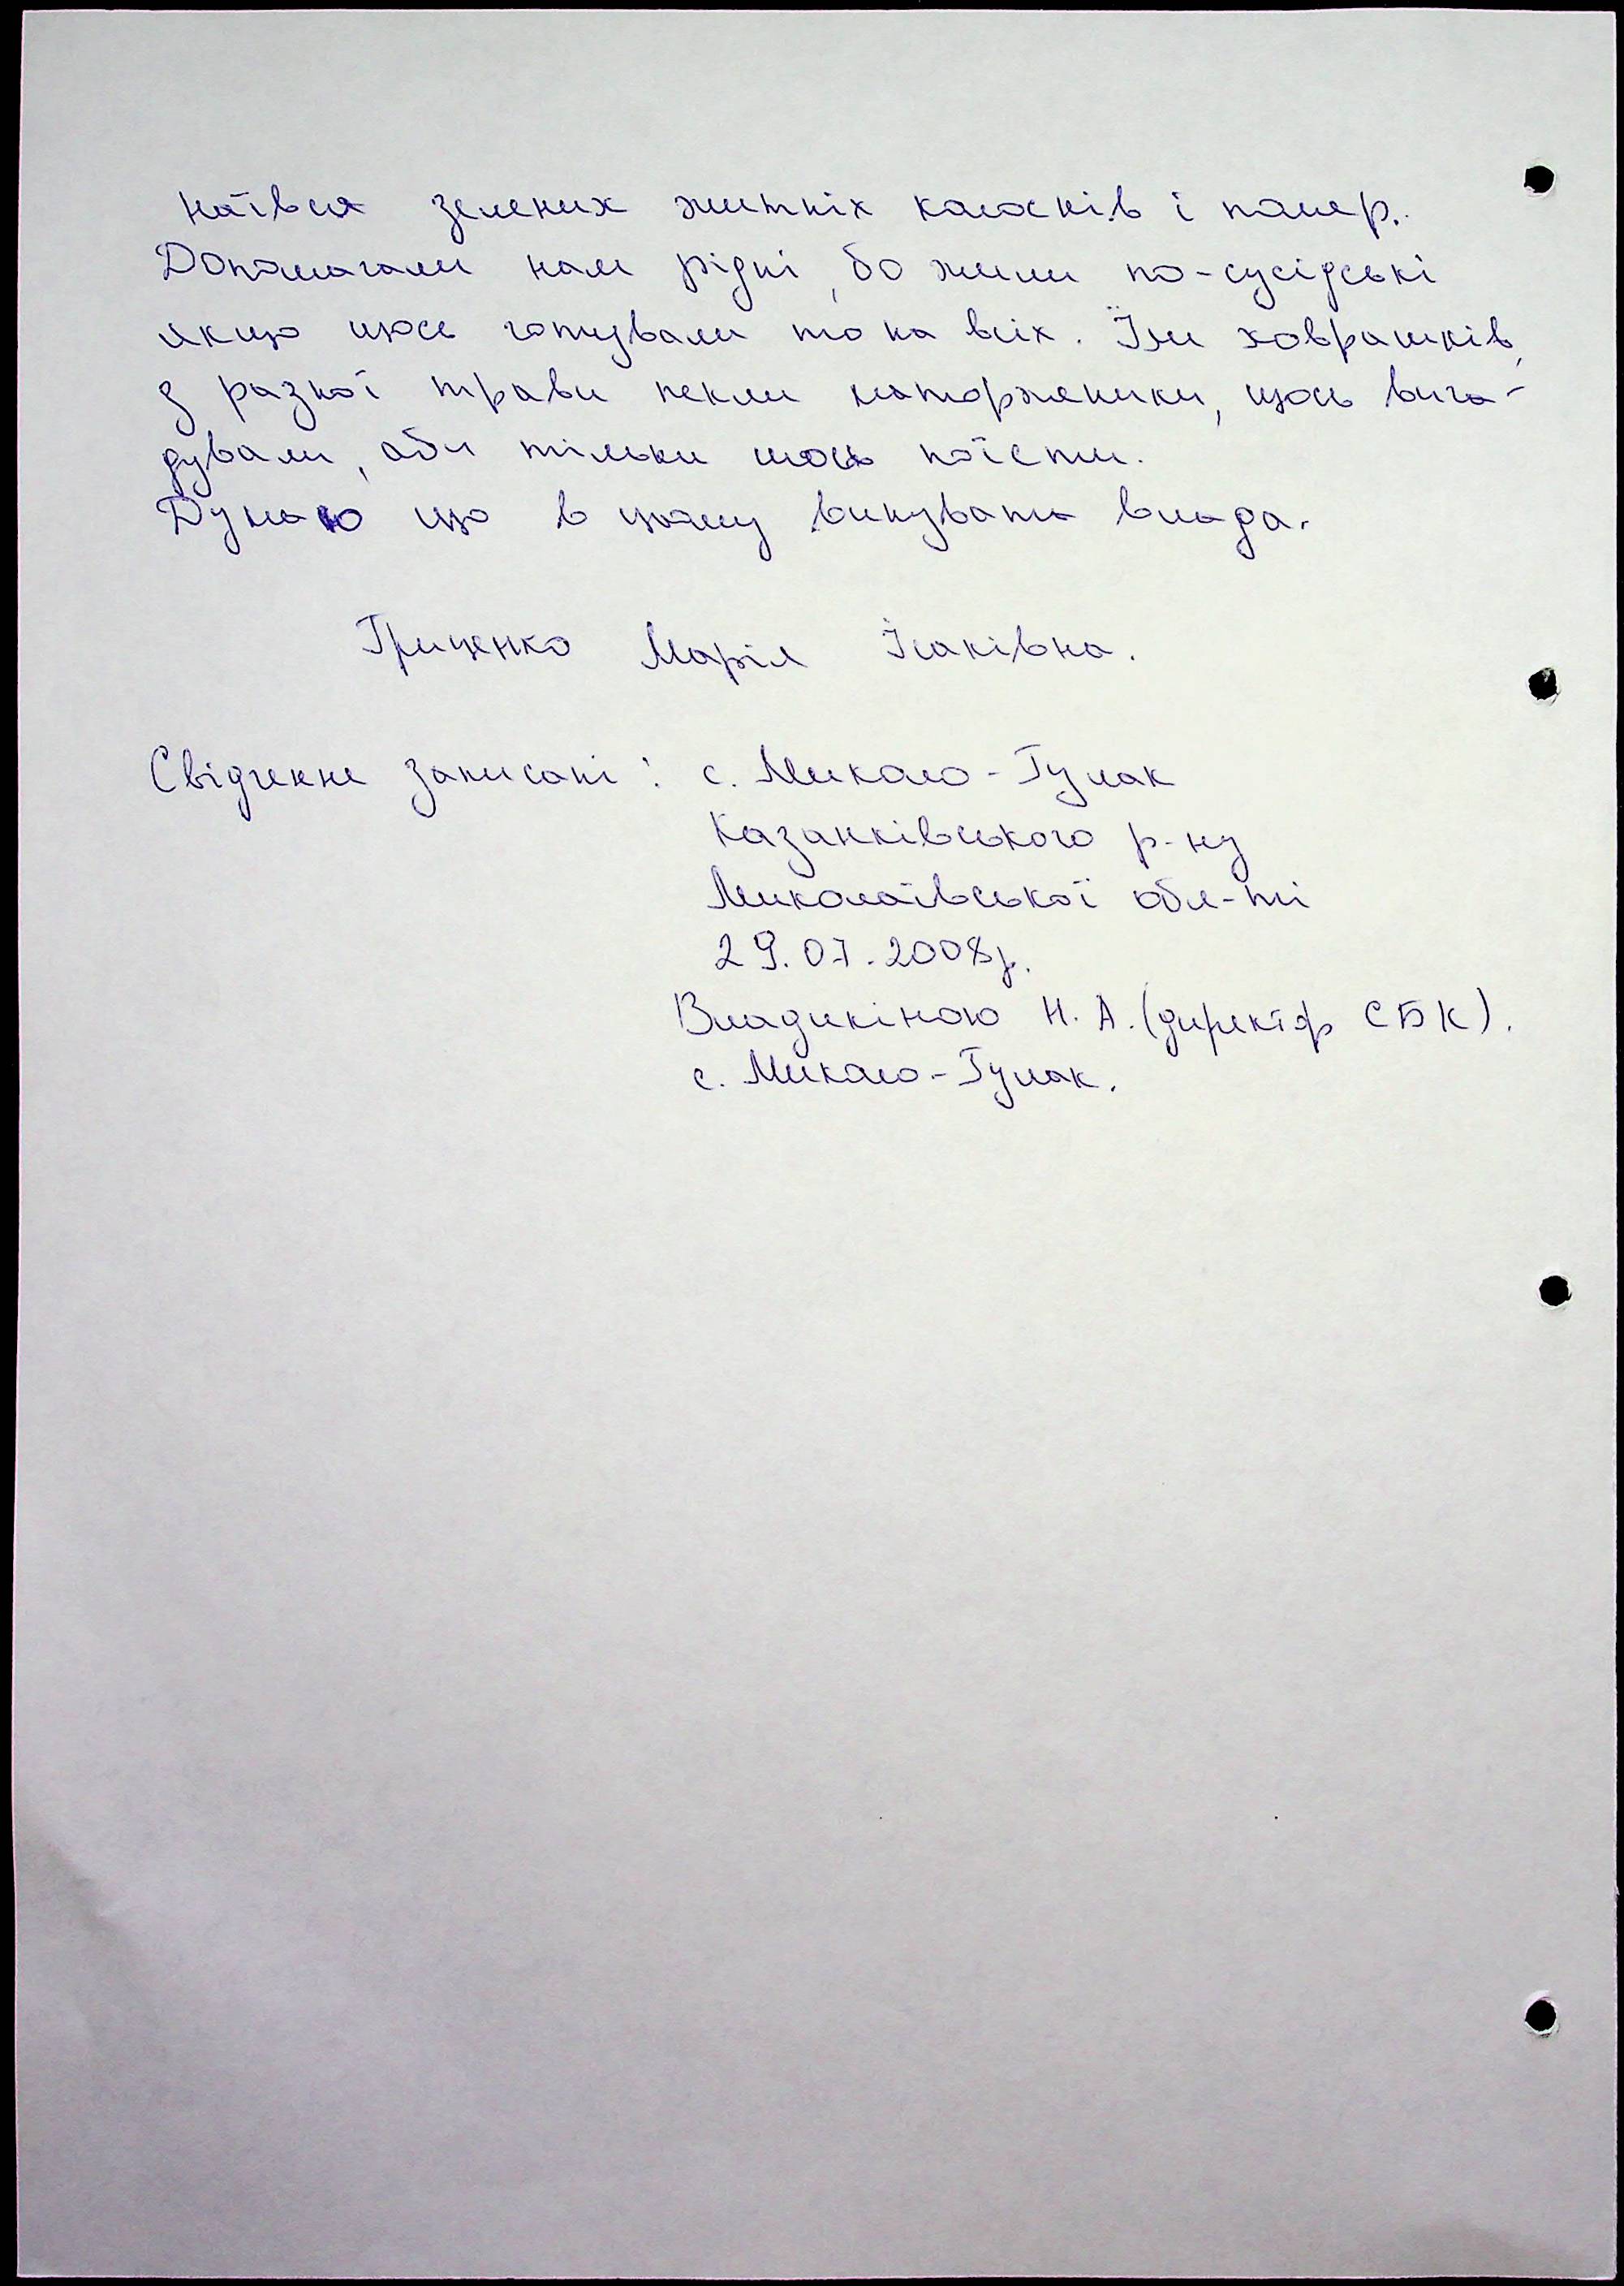 наївся зелених житніх колосків і помер.
Допомагали нам рідні, бо жили по-сусідські
якщо щось готували то на всіх. Їли ховрашків,
з разної трави пекли маторженики, щось вига-
дували, аби тільки щось поїсти.
Думаю що в цьому винувата влада.
Гриценко Марія Ісаківна.
Свідчення записані: с. Миколо-Гулак
Казанківського р-ну
Миколаївської обл-ті
29.07.2008р.
Владикіною Н. А. (директор СБК).
с. Миколо-Гулак.